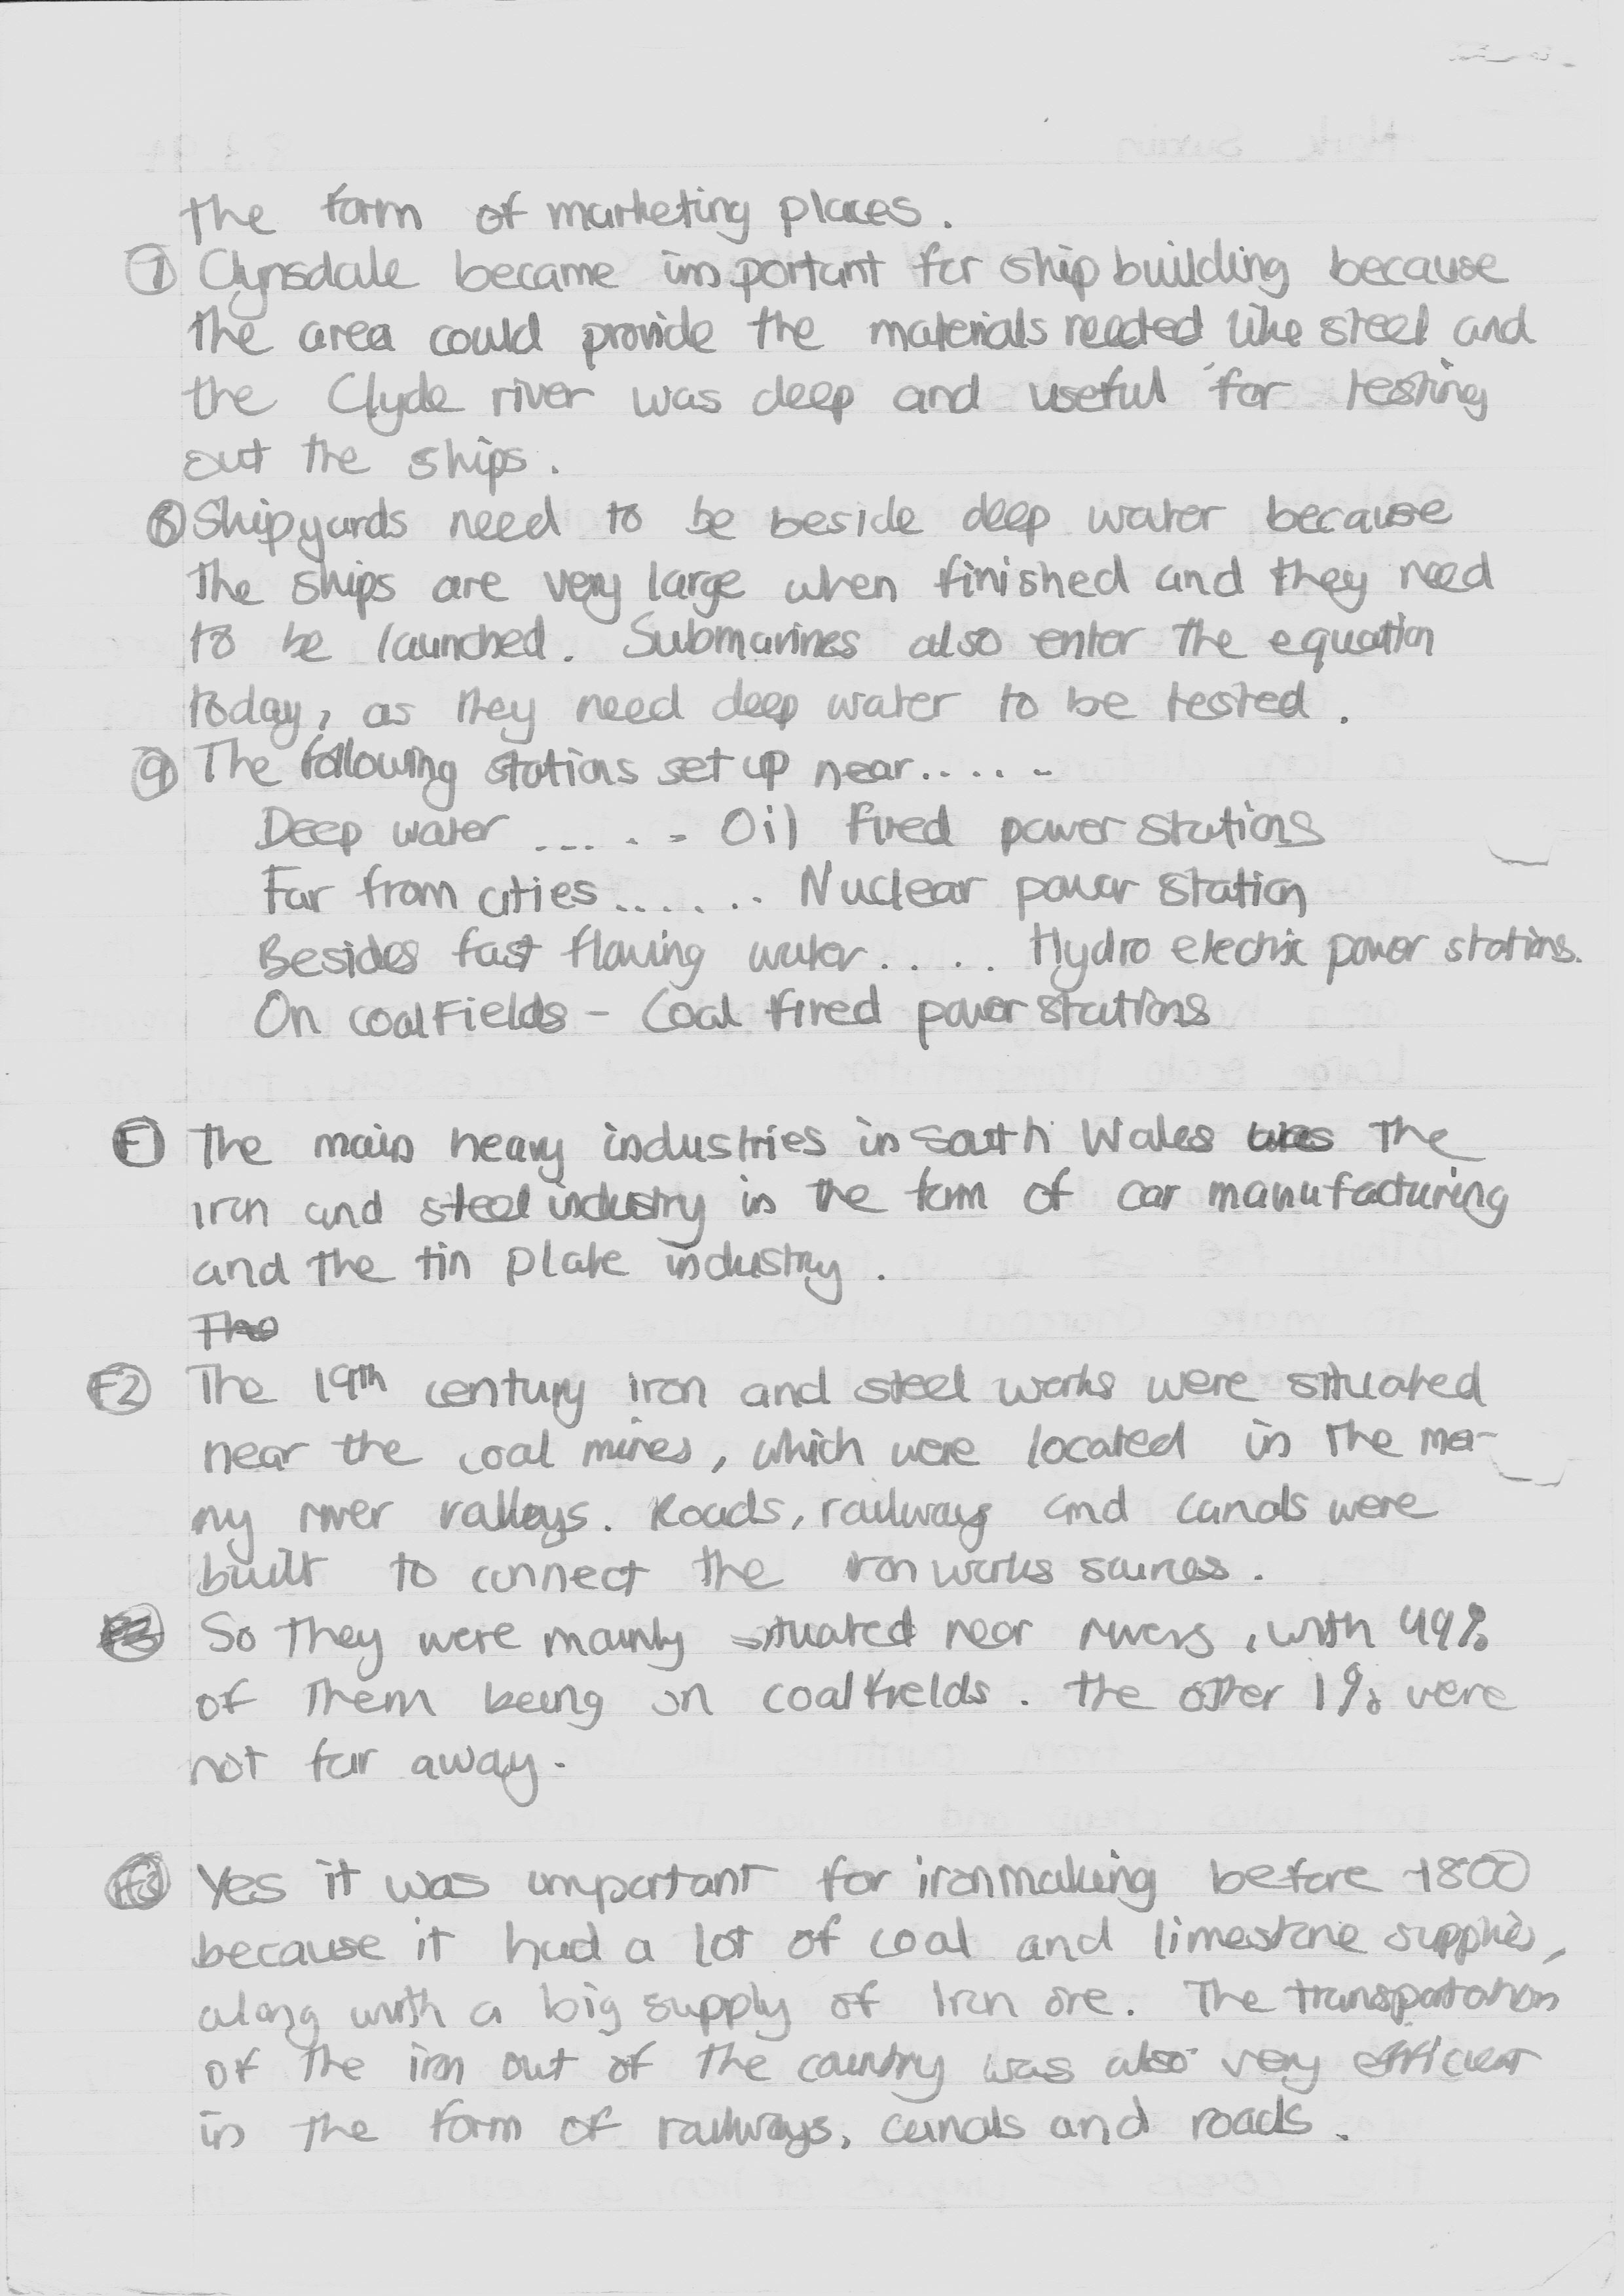 the form of marketing places.
⑦ Clynsdale became important for ship building because
the area could provide the materials needed like steel and
the Clyde river was deep and useful for testing
out the ships.
⑧ Shipyards need to be beside deep water because
the ships are very large when finished and they need
to be launched. Submarines also enter the equation
today, as they need deep water to be tested.
⑨ The following stations set up near.....-
Deep water ...... Oil fired power stations
Far from cities....... Nuclear power station
Besides fast flowing water..... Hydro electric power stations.
On coalfields - Coal fired power stations
F1 The main heavy industries in South Wales was the
iron and steel industry in the form of car manufacturing
and the tin plate industry.
The
F2 The 19th century iron and steel works were situated
near the coal mines, which were located in the ma-
ny river valleys. Roads, railways and canals were
built to connect the iron works sources.
So they were mainly situated near rivers, with 99%
of them being on coalfields. the other 1% were
not far away.
F3 Yes it was important for ironmaking before 1800
because it had a lot of coal and limestone supplies,
along with a big supply of iron ore. The transportation
of the iron out of the country was also very efficient
in the form of railways, canals and roads.